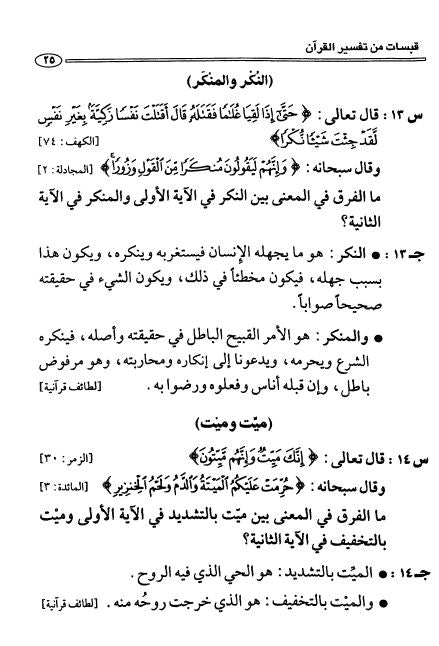 قبسات من تفسير القرآن
٢٥
(النُّكْر والمنكَر)
س ١٣ : قال تعالى : ﴿ حَتَّىٰ إِذَا لَقِيَا غُلَامًا فَقَتَلَهُ قَالَ أَقَتَلْتَ نَفْسًا زَكِيَّةً بِغَيْرِ نَفْسٍ
لَّقَدْ جِئْتَ شَيْئًا نُّكْرًا﴾ [الكهف : ٧٤]
وقال سبحانه : ﴿ وَإِنَّهُمْ لَيَقُولُونَ مُنكَرًا مِّنَ الْقَوْلِ وَزُورًا ﴾ [المجادلة : ٢]
ما الفرق في المعنى بين النكر في الآية الأولى والمنكر في الآية
الثانية؟
جـ ١٣ : • النكر : هو ما يجهله الإنسان فيستغربه وينكره، ويكون هذا
بسبب جهله، فيكون مخطئاً في ذلك، ويكون الشيء في حقيقته
صحيحاً صواباً.
• والمنكر : هو الأمر القبيح الباطل في حقيقته وأصله، فينكره
الشرع ويحرمه، ويدعونا إلى إنكاره ومحاربته، وهو مرفوض
باطل، وإن قبله أناس وفعلوه ورضوا به . [لطائف قرآنية]
(ميِّت وميْت)
س ١٤ : قال تعالى : ﴿ إِنَّكَ مَيِّتٌ وَإِنَّهُم مَّيِّتُونَ﴾ [الزمر : ٣٠]
وقال سبحانه : ﴿ حُرِّمَتْ عَلَيْكُمُ الْمَيْتَةُ وَالدَّمُ وَلَحْمُ الْخِنزِيرِ ﴾ [المائدة : ٣]
ما الفرق في المعنى بين ميّت بالتشديد في الآية الأولى وميْت
بالتخفيف في الآية الثانية؟
جـ ١٤ : • الميِّت بالتشديد : هو الحي الذي فيه الروح .
• والميْت بالتخفيف : هو الذي خرجت روحُه منه . [لطائف قرآنية]